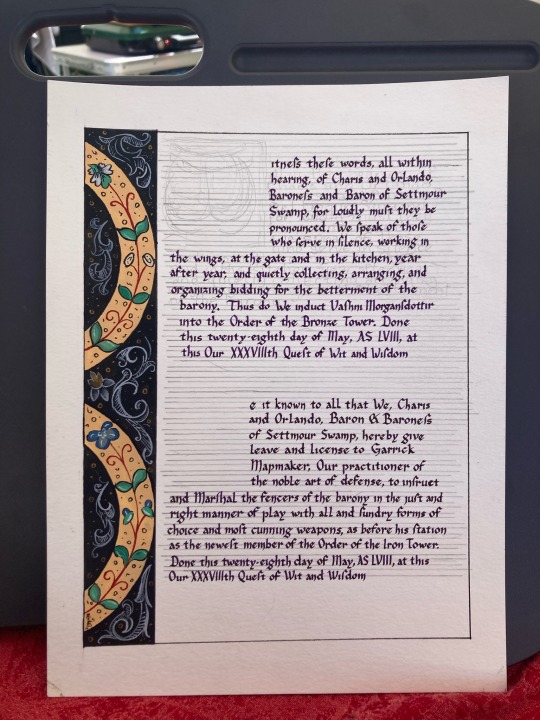 itneſs theſe words, all within
hearing, of Charis and Orlando,
Baroneſs and Baron of Settmour
Swamp, for loudly muſt they be
pronounced. We ſpeak of thoſe
who ſerve in ſilence, working in
the wings, at the gate and in the kitchen, year
after year, and quietly collecting, arranging, and
organizing bidding for the betterment of the
barony. Thus do We induct Vaſhti Morganſdottir
into the Order of the Bronze Tower. Done
this twenty-eighth day of May, AS LVIII, at
this Our XXXVIIIth Queſt of Wit and Wiſdom
e it known to all that We, Charis
and Orlando, Baron & Baroneſs
of Settmour Swamp, hereby give
leave and license to Garrick
Mapmaker, Our practitioner of
the noble art of defense, to inſtruct
and Marſhal the fencers of the barony in the juſt and
right manner of play with all and ſundry forms of
choice and moſt cunning weapons, as before his ſtation
as the neweſt member of the Order of the Iron Tower.
Done this twenty-eighth day of May, AS LVIII, at this
Our XXXVIIIth Queſt of Wit and Wiſdom